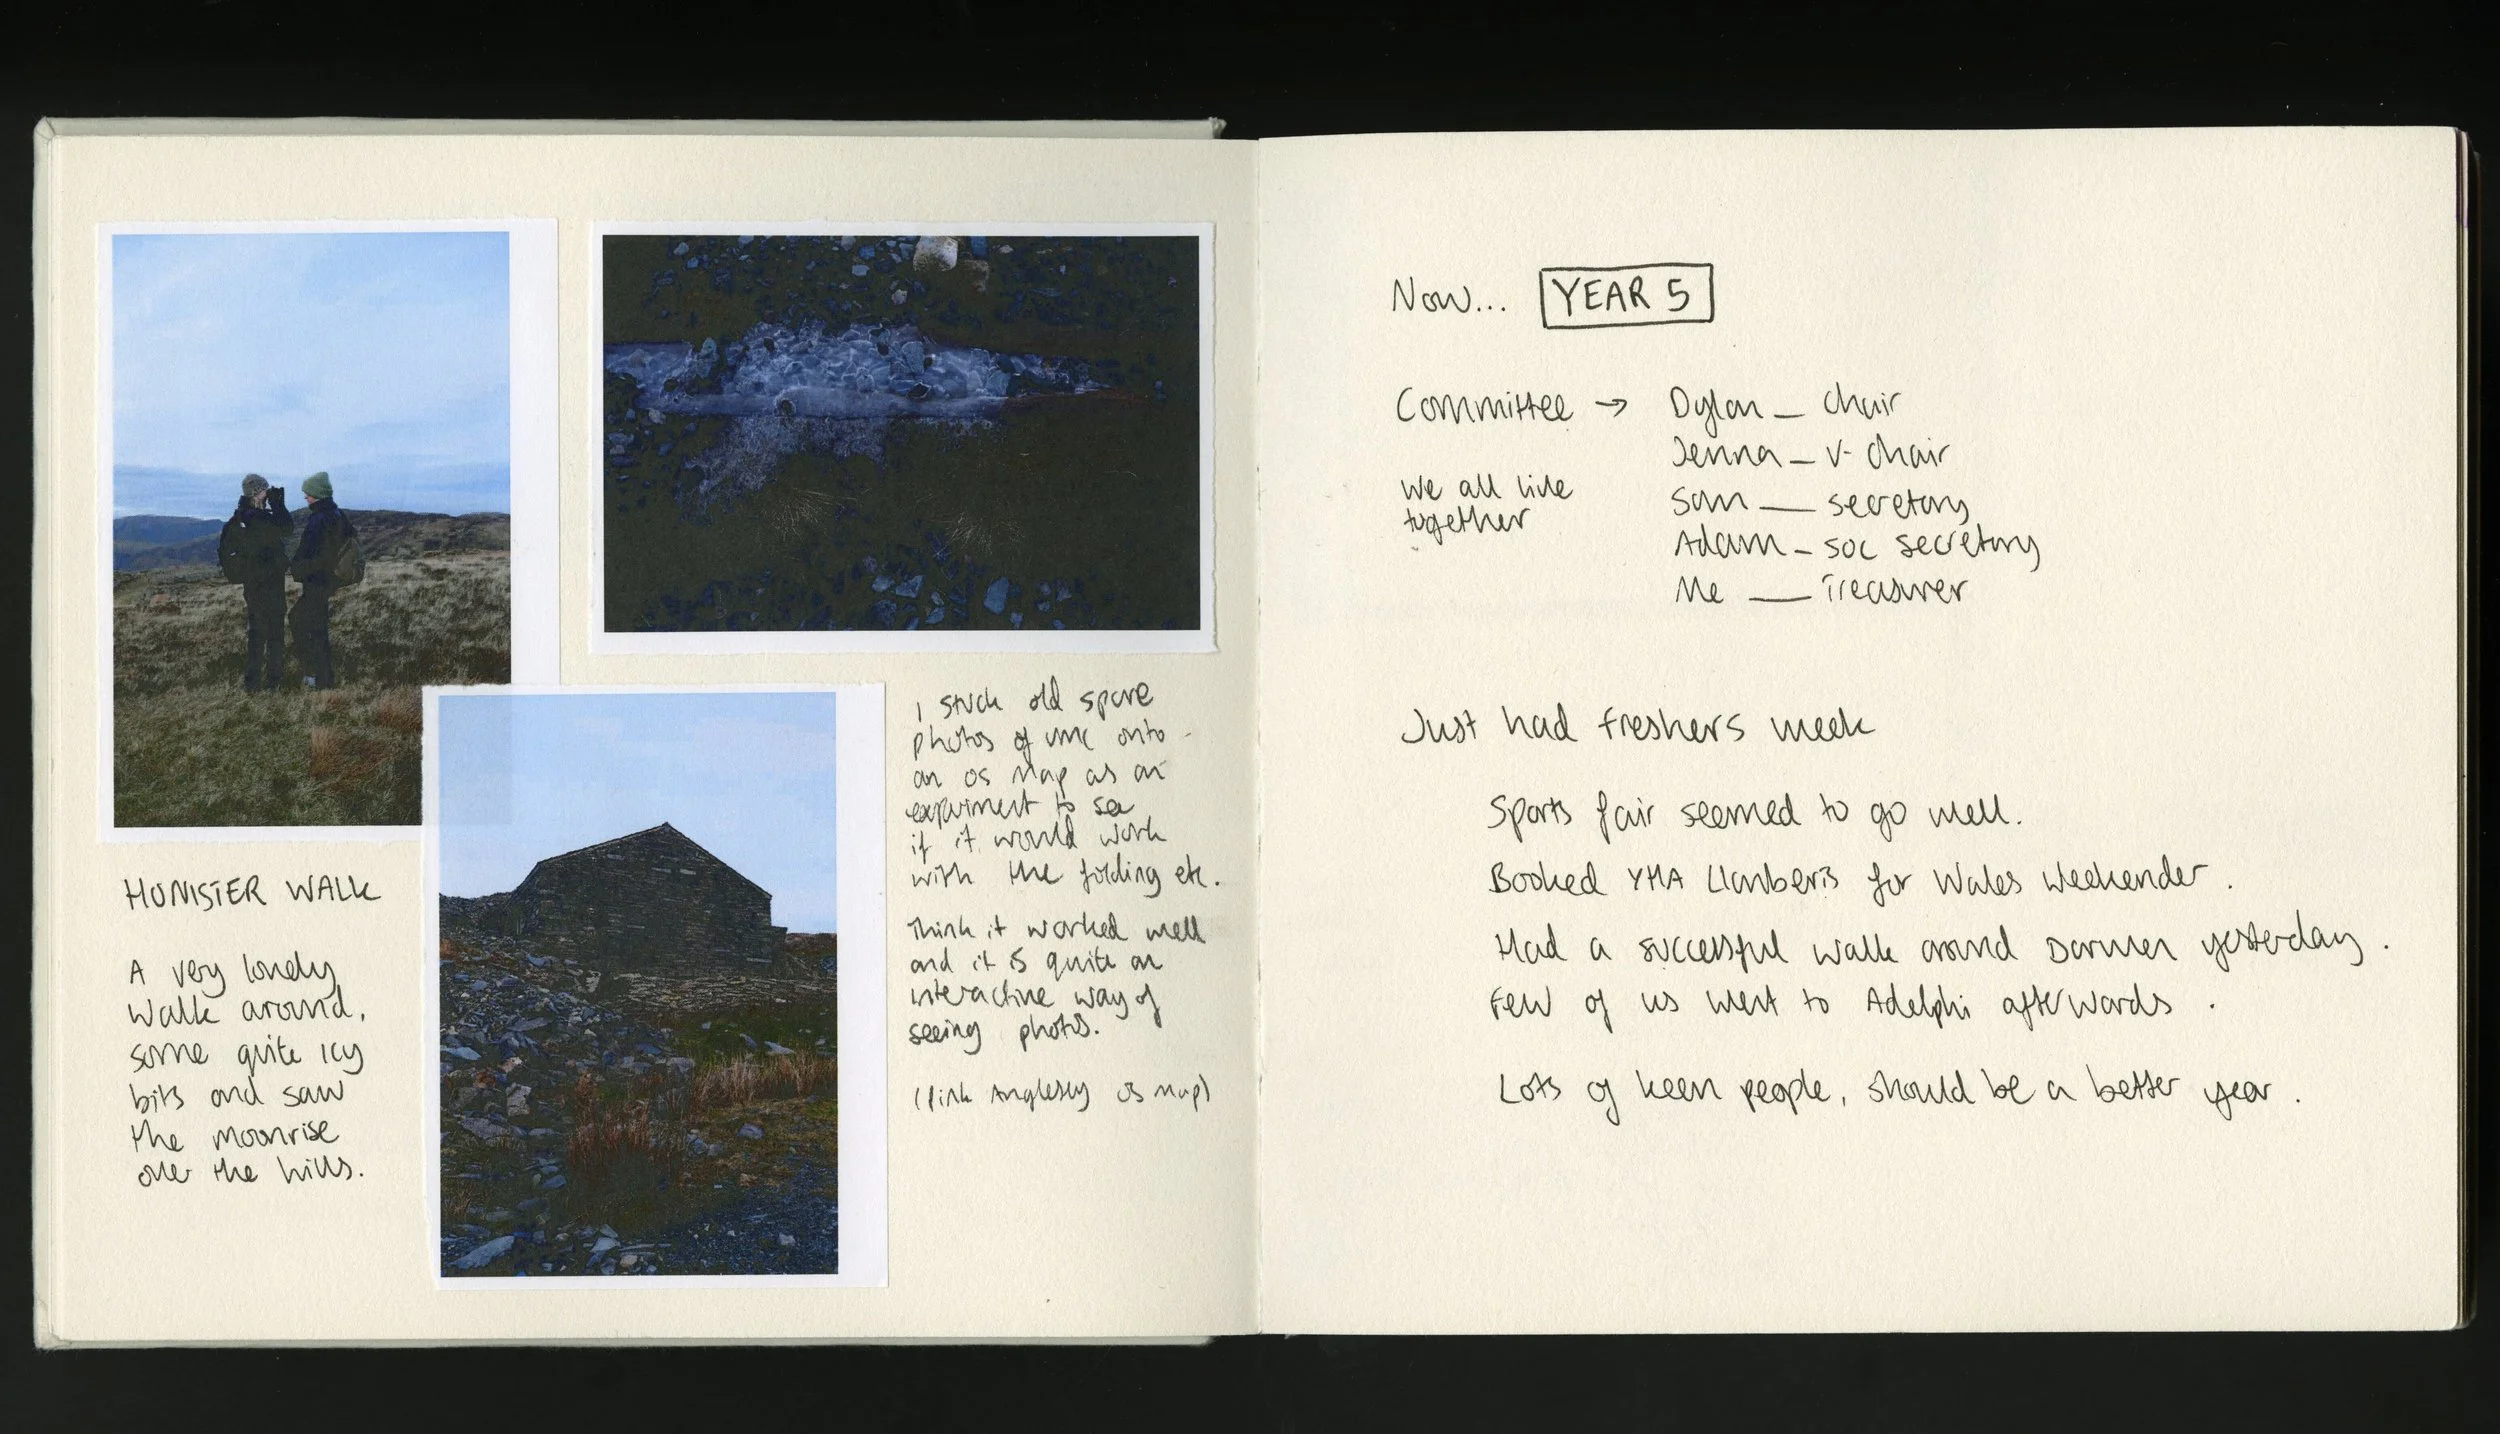 HONISTER WALK
A very lonely
walk around,
some quite icy
bits and saw
the moonrise
over the hills.
I stuck old spare
photos of umc onto
an os map as an
experiment to see
if it would work
with the folding etc.
Think it worked well
and it is quite an
interactive way of
seeing photos.
(Pink Anglesey os map)
Now... YEAR 5
Committee → Dylan _ chair
Jenna _ v-chair
Sam __ secretary
Adam _ soc secretary
Me __ Treasurer
We all live
together
Just had freshers week
Sports fair seemed to go well.
Booked YHA Llanberis for Wales Weekender.
Had a successful walk around Darwen yesterday.
Few of us went to Adelphi afterwards.
Lots of keen people, should be a better year.